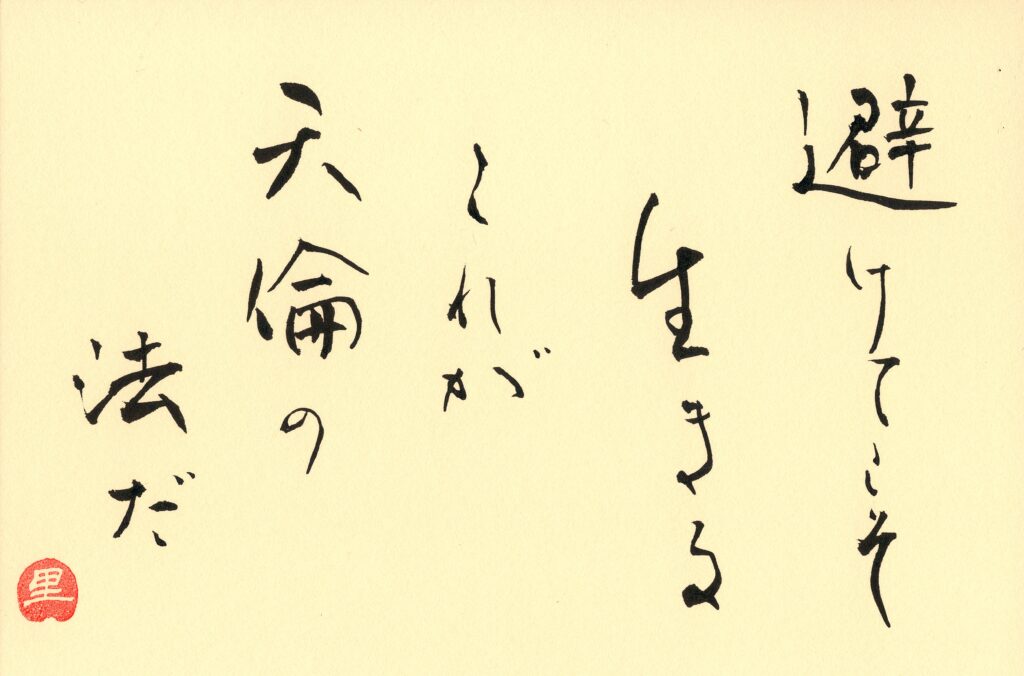 避けてこそ
生きる
これが
天倫の
法だ
里